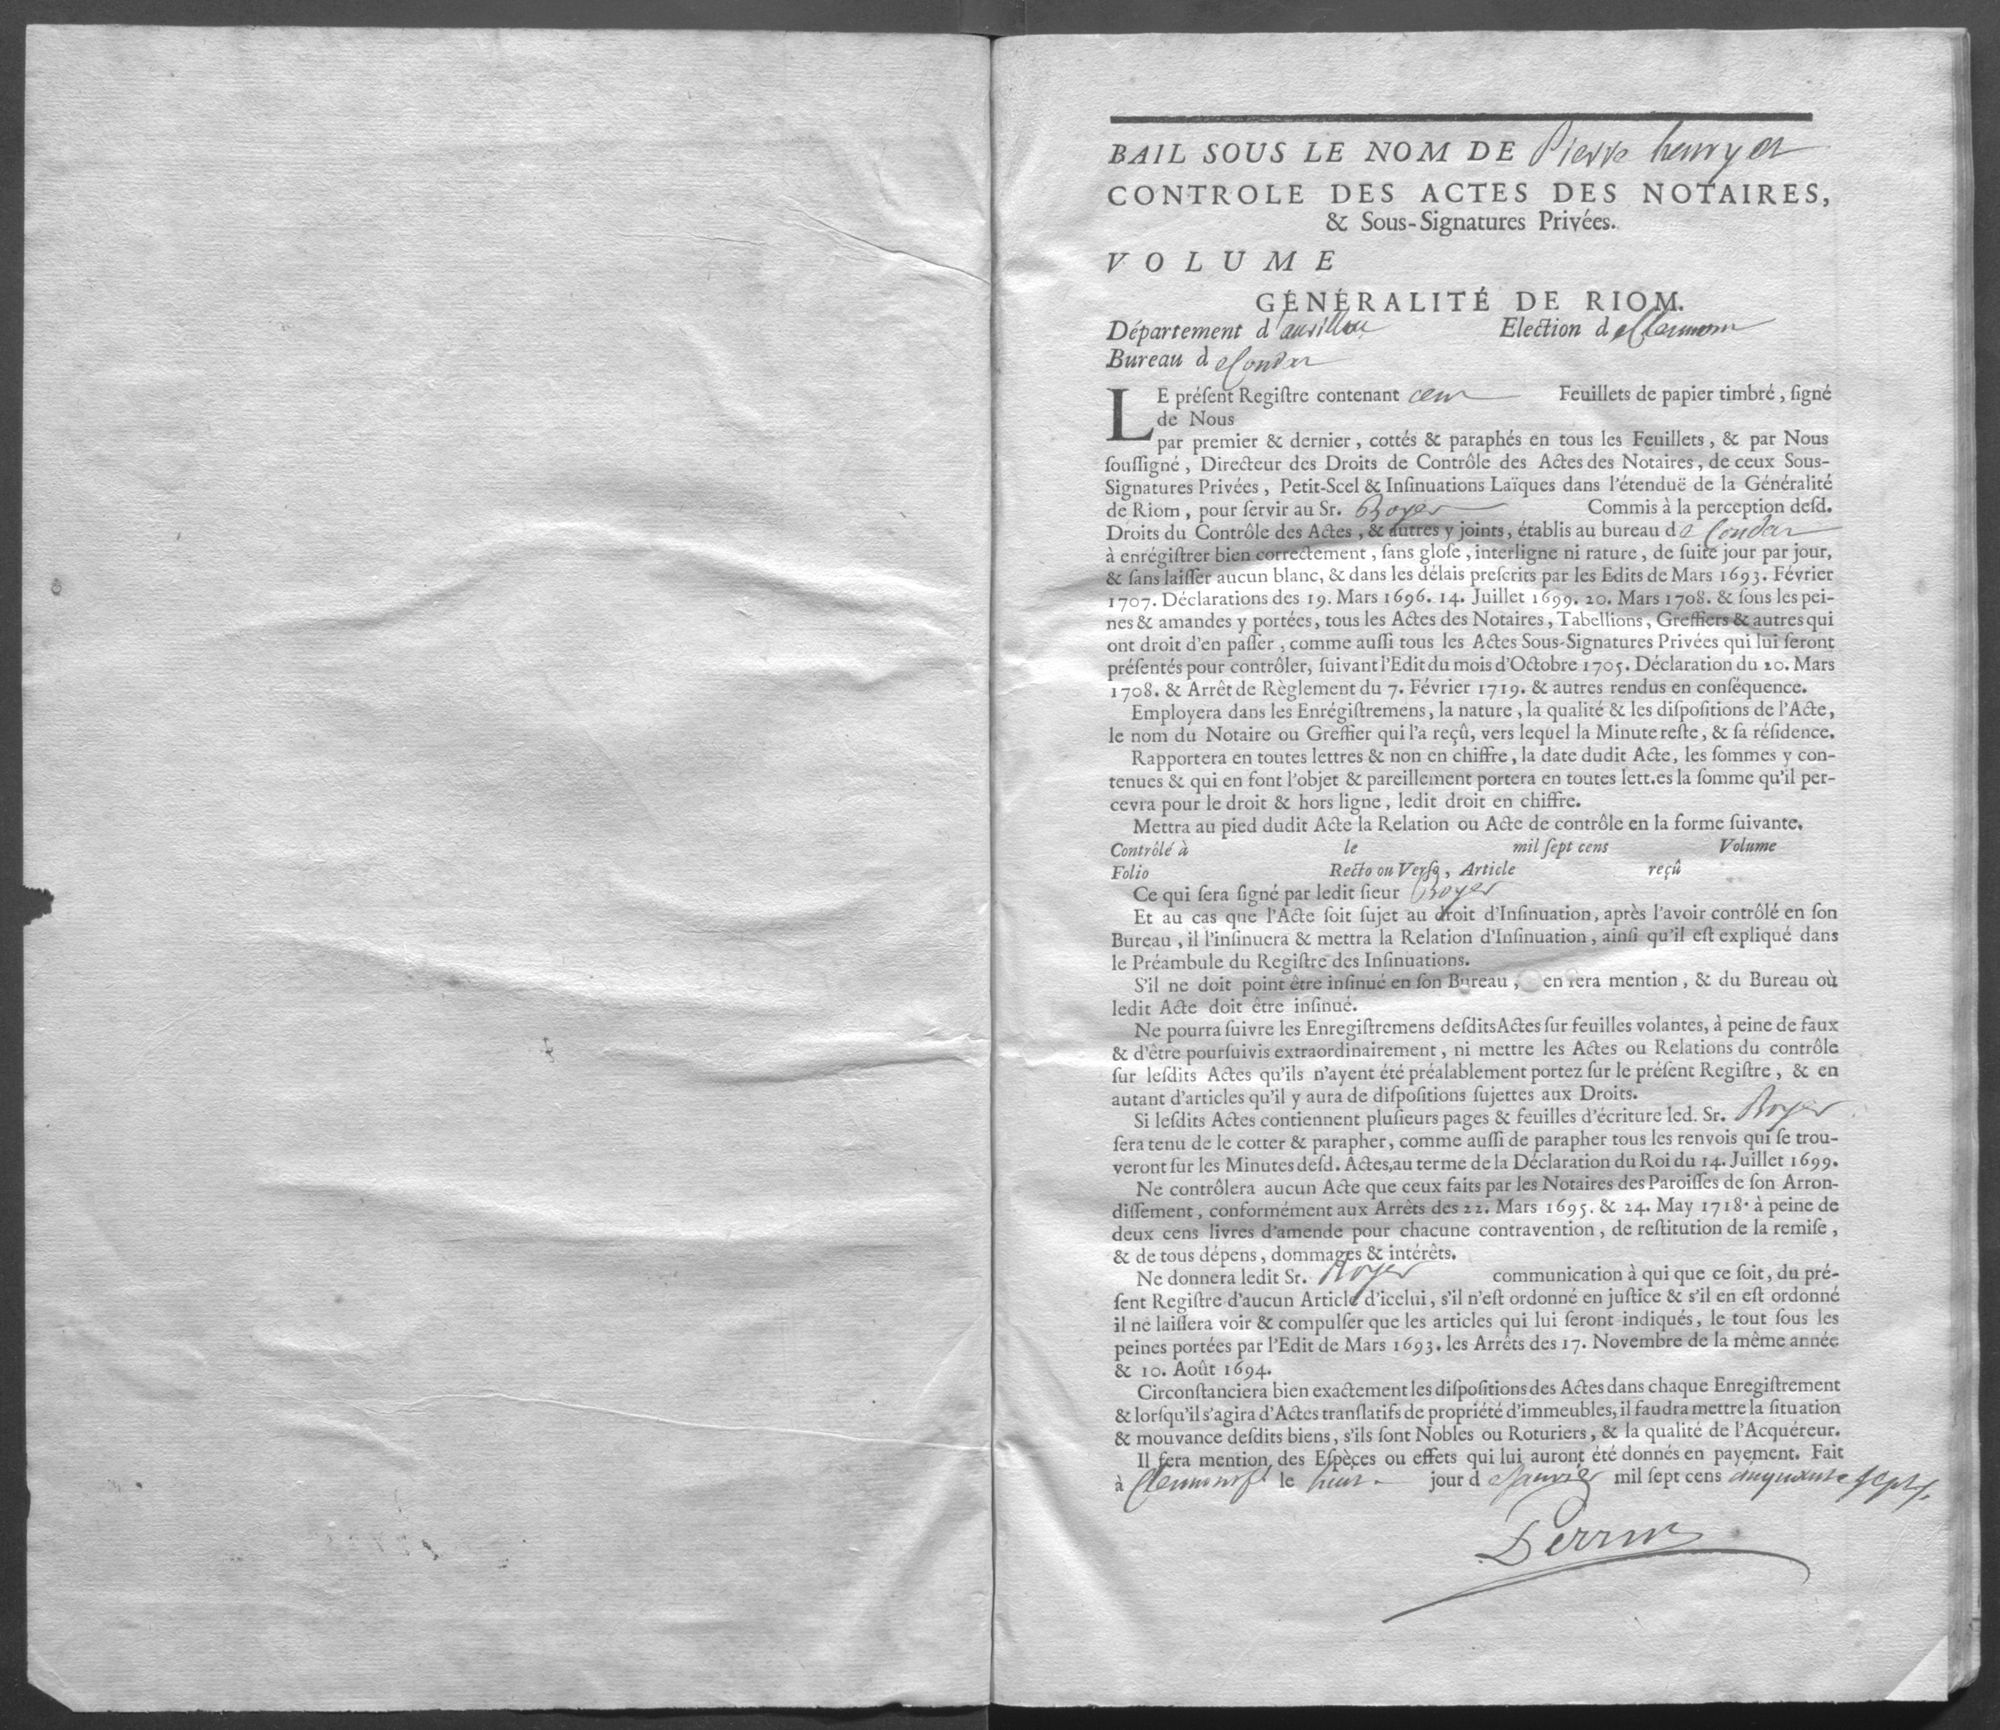 BAIL SOUS LE NOM DE Pierre henryet
CONTROLE DES ACTES DES NOTAIRES,
& Sous-Signatures Privées.
VOLUME
GÉNÉRALITÉ DE RIOM.
Département d'aurillac Election de Clermont
Bureau de Condat
LE préſent Regiſtre contenant cent Feuillets de papier timbré, ſigné
de Nous
par premier & dernier, cottés & paraphés en tous les Feuillets, & par Nous
ſouſſigné, Directeur des Droits de Contrôle des Actes des Notaires, de ceux Sous-
Signatures Privées, Petit-Scel & Inſinuations Laïques dans l'étenduë de la Généralité
de Riom, pour ſervir au Sr. Boyer Commis à la perception deſd.
Droits du Contrôle des Actes, & autres y joints, établis au bureau de Condat
à enrégiſtrer bien correctement, ſans gloſe, interligne ni rature, de ſuite jour par jour,
& ſans laiſſer aucun blanc, & dans les délais preſcrits par les Edits de Mars 1693. Février
1707. Déclarations des 19. Mars 1696. 14. Juillet 1699. 20. Mars 1708. & ſous les pei-
nes & amandes y portées, tous les Actes des Notaires, Tabellions, Greffiers & autres qui
ont droit d'en paſſer, comme auſſi tous les Actes Sous-Signatures Privées qui lui ſeront
préſentés pour contrôler, ſuivant l'Edit du mois d'Octobre 1705. Déclaration du 20. Mars
1708. & Arrêt de Règlement du 7. Février 1719. & autres rendus en conſéquence.
Employera dans les Enrégiſtremens, la nature, la qualité & les diſpoſitions de l'Acte,
le nom du Notaire ou Greffier qui l'a reçû, vers lequel la Minute reſte, & ſa réſidence.
Rapportera en toutes lettres & non en chiffre, la date dudit Acte, les ſommes y con-
tenues & qui en font l'objet & pareillement portera en toutes lett.es la ſomme qu'il per-
cevra pour le droit & hors ligne, ledit droit en chiffre.
Mettra au pied dudit Acte la Relation ou Acte de contrôle en la forme ſuivante.
Contrôlé à le mil ſept cens Volume
Folio Recto ou Verſo, Article reçû
Ce qui ſera ſigné par ledit ſieur Boyer
Et au cas que l'Acte ſoit ſujet au droit d'Inſinuation, après l'avoir contrôlé en ſon
Bureau, il l'inſinuera & mettra la Relation d'Inſinuation, ainſi qu'il eſt expliqué dans
le Préambule du Regiſtre des Inſinuations.
S'il ne doit point être inſinué en ſon Bureau, en ſera mention, & du Bureau où
ledit Acte doit être inſinué.
Ne pourra ſuivre les Enregiſtremens deſdits Actes ſur feuilles volantes, à peine de faux
& d'être pourſuivis extraordinairement, ni mettre les Actes ou Relations du contrôle
ſur leſdits Actes qu'ils n'ayent été préalablement portez ſur le préſent Regiſtre, & en
autant d'articles qu'il y aura de diſpoſitions ſujettes aux Droits.
Si leſdits Actes contiennent pluſieurs pages & feuilles d'écriture led. Sr. Boyer
ſera tenu de le cotter & parapher, comme auſſi de parapher tous les renvois qui ſe trou-
veront ſur les Minutes deſd. Actes, au terme de la Déclaration du Roi du 14. Juillet 1699.
Ne contrôlera aucun Acte que ceux faits par les Notaires des Paroiſſes de ſon Arron-
diſſement, conformément aux Arrêts des 22. Mars 1695. & 24. May 1718. à peine de
deux cens livres d'amende pour chacune contravention, de reſtitution de la remiſe,
& de tous dépens, dommages & intérêts.
Ne donnera ledit Sr. Boyer communication à qui que ce ſoit, du pré-
ſent Regiſtre d'aucun Article d'icelui, s'il n'eſt ordonné en juſtice & s'il en eſt ordonné
il ne laiſſera voir & compulſer que les articles qui lui ſeront indiqués, le tout ſous les
peines portées par l'Edit de Mars 1693. les Arrêts des 17. Novembre de la même année
& 10. Août 1694.
Circonſtanciera bien exactement les diſpoſitions des Actes dans chaque Enregiſtrement
& lorſqu'il s'agira d'Actes tranſlatifs de propriété d'immeubles, il faudra mettre la ſituation
& mouvance deſdits biens, s'ils ſont Nobles ou Roturiers, & la qualité de l'Acquéreur.
Il ſera mention des Eſpèces ou effets qui lui auront été donnés en payement. Fait
à Clermont le huit jour de Janvier mil ſept cens cinquante sept
Perrin